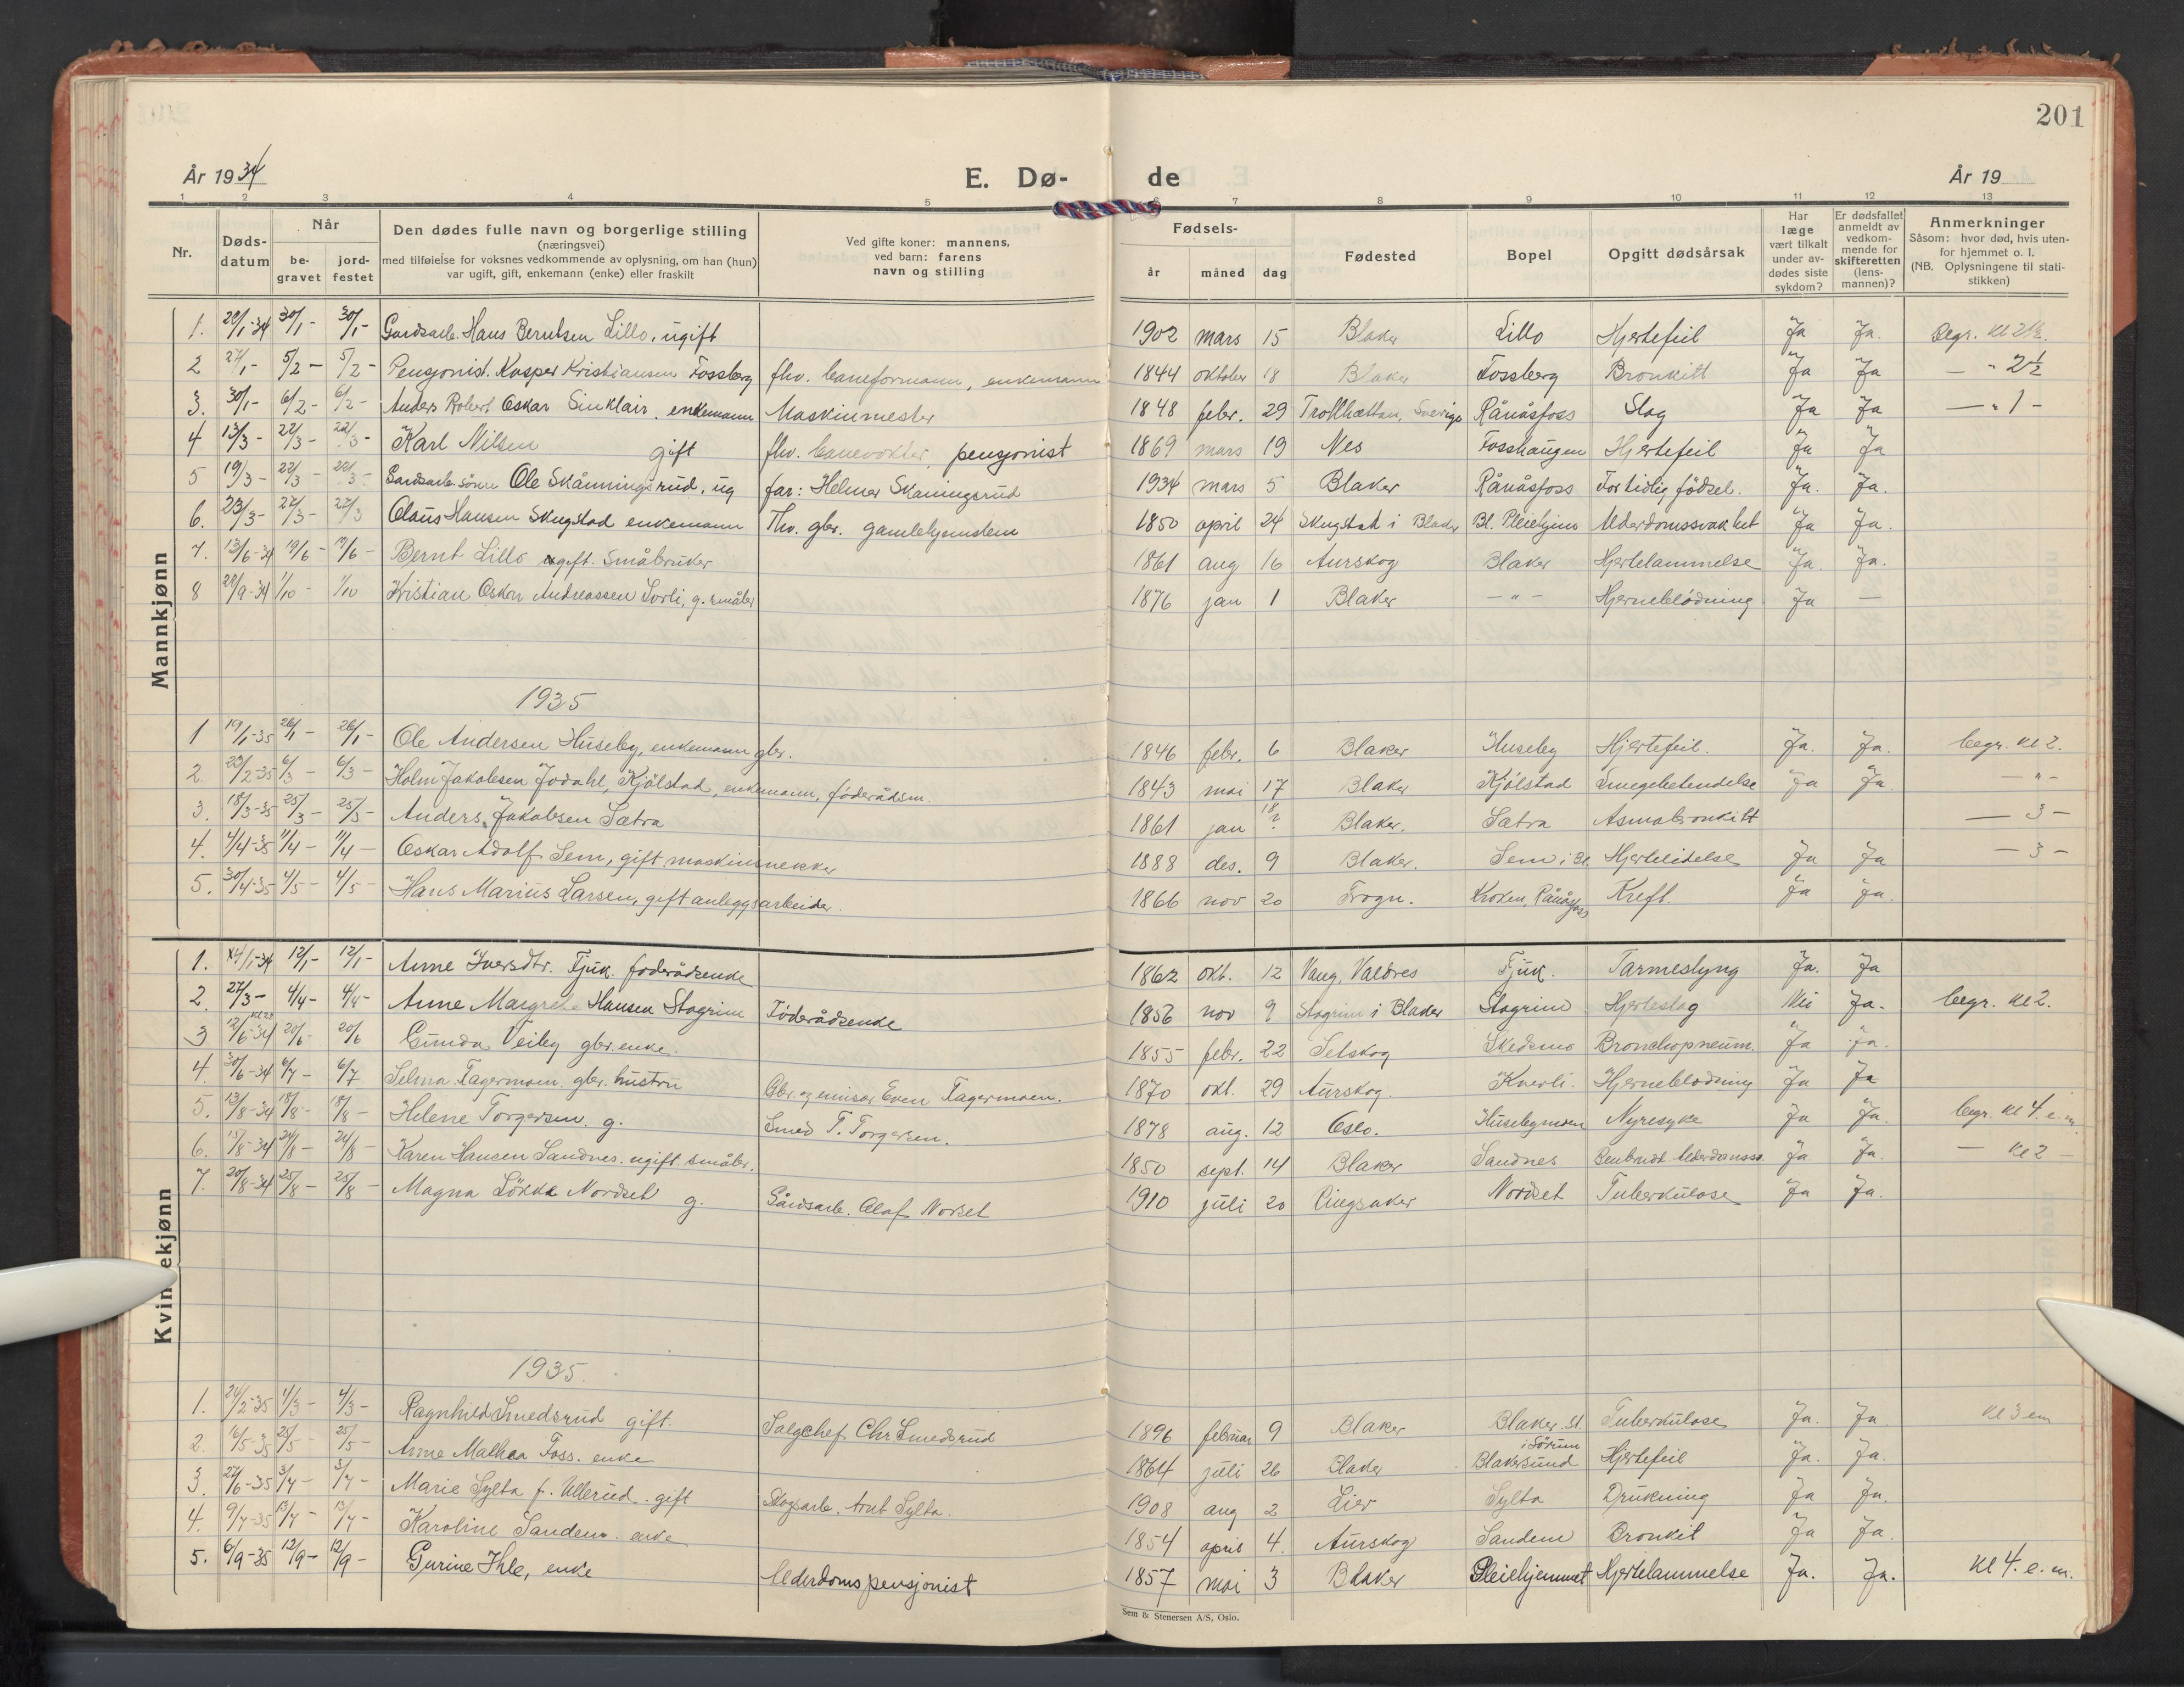 201
År 1934 E. Dø- de År 19
1 2 3 4 5 6 7 8 9 10 11 12 13
Nr.
Døds-
datum
Når
be-
gravet
jord-
festet
Den dødes fulle navn og borgerlige stilling
(næringsvei)
med tilføielse for voksnes vedkommende av oplysning, om han (hun)
var ugift, gift, enkemann (enke) eller fraskilt
Ved gifte koner: mannens,
ved barn: farens
navn og stilling
Fødsels-
år måned dag
Fødested
Bopel
Opgitt dødsårsak
Har
læge
vært tilkalt
under av-
dødes siste
sykdom?
Er dødsfallet
anmeldt av
vedkom-
mende for
skifteretten
(lens-
mannen)?
Anmerkninger
Såsom: hvor død, hvis uten-
for hjemmet o. l.
(NB. Oplysningene til stati-
stikken)
Mannkjønn
1. 30/1- 30/1- Gardsarb. Hans Berntsen Lillo, ugift 1902 mars 15 Blaker Lillo Hjertefeil Ja Ja. Begr. kl 2½.
2 5/2- 5/2- Pensjonist. Kasper Kristiansen Fossberg fhv. baneformann, enkemann 1844 oktober 18 Blaker Fossberg Bronkitt Ja Ja — " 2½
3. 30/1- 6/2- 6/2- Anders Robert Oskar Sinklair, enkemann Maskinmester 1848 febr. 29 Trollhættan, Sverige Rånåsfoss Slag Ja Ja — " 1 -
4 13/3- 22/3- 22/3- Karl Nilsen gift fhv. banevokter, pensjonist 1869 mars 19 Nes Fosshaugen Hjertefeil Ja Ja
5 19/3- 22/3- 22/3- Gardsarb. sönn Ole Skånningsrud, ug far: Helmer Skaningsrud 1934 mars 5 Blaker Rånåsfoss For tidlig födsel. Ja. Ja.
6. 23/3- 27/3- 27/3 Olaus Hansen Skugstad enkemann Fhv. gbr. gamlehjemslem 1850 april 24 Skugstad i Blaker Bl. Pleiehjem Alderdomssvakhet Ja Ja.
7. 13/6-34 19/6- 19/6- Bernt Lillo ugift. Småbruker 1861 aug 16 Aurskog Blaker Hjertelammelse Ja. Ja.
8 28/9-34 1/10- 1/10 Kristian Oskar Andreassen Lorli, g. småbr 1876 jan 1 Blaker — " — Hjerneblödning Ja —
1935
1 19/1-35 26/1- 26/1- Ole Andersen Huseby, enkemann gbr. 1846 febr. 6 Blaker Huseby Hjertefeil. Ja. Ja. begr. kl 2.
2. 6/3- 6/3- Holm Jakobsen Jodahl, Kjölstad, enkemann, föderådsm. 1843 mai 17 Blaker Kjölstad Lungebetendelse Ja Ja — " -
3. 18/3-35 25/3- 25/3- Anders Jakobsen Sætra 1861 jan 18? Blaker. Sætra Asmabronkitt — 3 -
4. 4/4-35 11/4- 11/4- Oskar Adolf Sem, gift maskinsnekker 1888 des. 9 Blaker. Sem i Bl. Hjertelidelse Ja Ja — 3 -
5. 30/4-35 4/5- 4/5- Hans Marius Larsen, gift anleggsarbeider. 1866 nov 20 Frogn. Kroken, Rånåsfoss Kreft. Ja Ja.
Kvinnekjønn
1. 12/1- 12/1- Anne Iversdtr. Tjuk. föderådsenke 1862 okt. 12 Vang, Valdres Tjuk. Tarmeslyng Ja. Ja
2. 27/3- 4/4- 4/4- Anne Margrete Hansen Stogrim Föderådsenke 1856 nov 9 Stogrim i Blaker Stogrim Hjerteslag Nei Ja. begr. kl 2.
3 20/6- 20/6 Gunda Veiby gbr. enke. 1855 febr. 22 Setskog Skedsmo Bronchopneum. Ja Ja.
4. 30/6-34 6/7- 6/7 Selma Fagermoen. gbr. hustru Gbr. og emissær Even Fagermoen. 1870 okt. 29 Aurskog. Kverli. Hjerneblodning Ja Ja
5. 13/8-34 18/8- 18/8- Helene Torgersen. g. Smed T. Torgersen. 1878 aug. 12 Oslo. Husebymoen Nyresyke Ja Ja. begr. kl 4. e. m.
6. 18/8-34 24/8- 24/8- Karen Hansen Sandnes. ugift. småbr. 1850 sept. 14 Blaker Sandnes Benbrudd Alderdomssv. Ja Ja. — kl 2 —
7. 20/8-34 25/8- 25/8- Magna Lökke Nordset g. Gårdsarb. Olaf Norset 1910 juli 20 Ringsaker Nordset Tuberkulose Ja Ja.
1935.
1. 4/3- 4/3- Ragnhild Smedsrud gift. Salgchef Chr Smedsrud 1896 februar 9 Blaker Blaker st. Tuberkulose Ja. Ja kl 3 em
2. 16/5-35 25/5- 25/5- Anne Mathea Foss. enke 1864 juli 26 Blaker Blakersund i Sörum Hjertefeil Ja. Ja.
3. 27/6-35 3/7- 3/7- Marie Sylta f. Ullerud. gift Skogsarb. Arnt Sylta. 1908 aug 2 Lier Sylta Drukning Ja Ja.
4. 9/7-35 13/7- 13/7- Karoline Sandem. enke 1854 april 4. Aurskog Sandem Bronkit Ja Ja.
5. 6/9-35 12/9- 12/9- Gurine Ihle, enke Alderdomspensjonist 1857 mai 3 Blaker Pleiehjemmet Hjertelammelse Ja. Ja. Kl 4. e. m.
Sem & Stenersen A/S, Oslo.